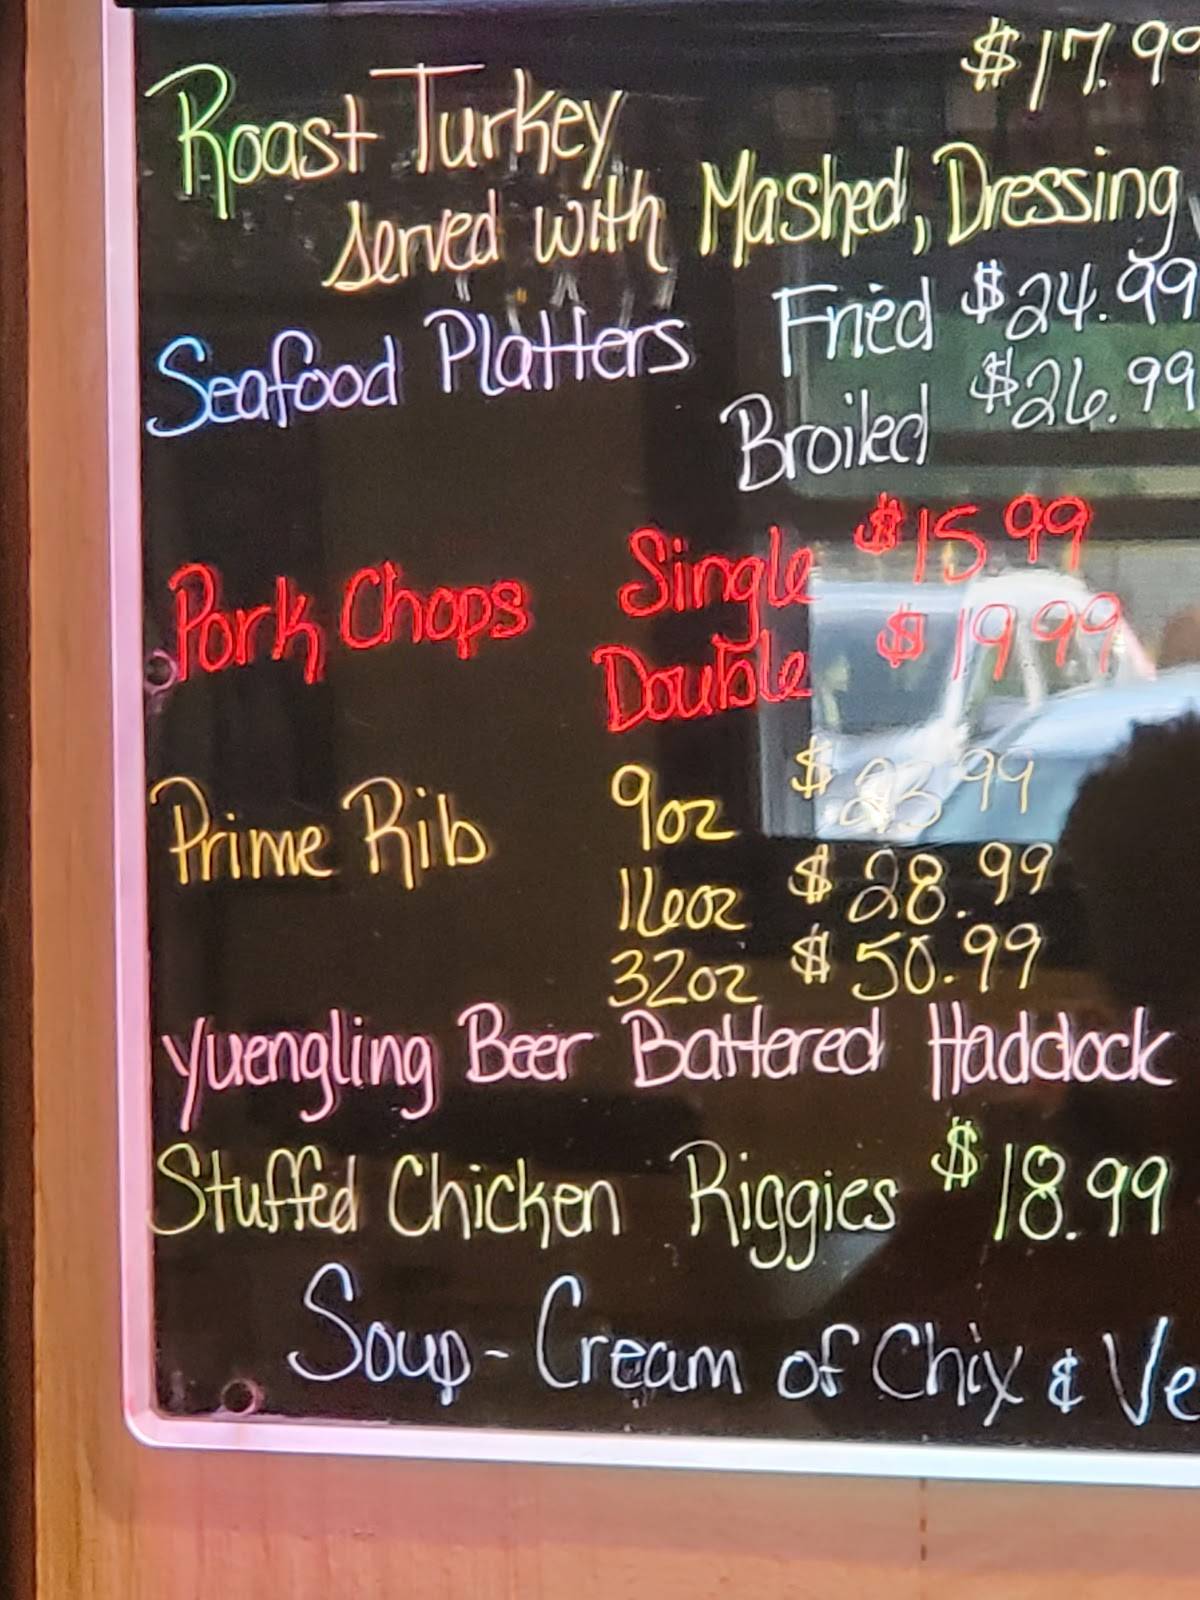 $17.99
Roast Turkey
served with Mashed, Dressing
Seafood Platters Fried $24.99
Broiled $26.99
Pork Chops Single $15.99
Double $19.99
Prime Rib 9oz $23.99
16oz $28.99
32oz $50.99
Yuengling Beer Battered Haddock
Stuffed Chicken Riggies $18.99
Soup - Cream of Chix &